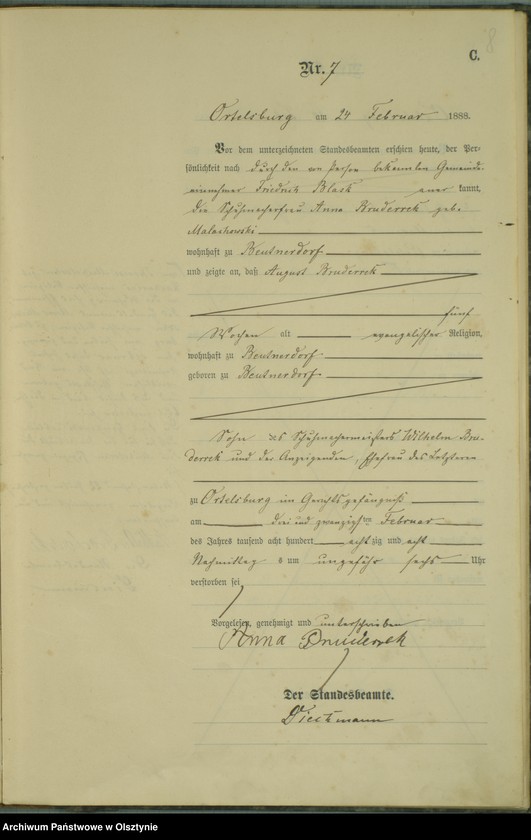 8
C.
Nr. 7
Ortelsburg am 24 Februar 1888.
Vor dem unterzeichneten Standesbeamten erschien heute, der Per-
sönlichkeit nach durch den von Person bekannten Gemeinde-
einnehmer Friedrich Black aner kannt,
die Schuhmacherfrau Anna Bruderrek geb.
Malachowski
wohnhaft zu Beutnerdorf
und zeigte an, daß August Bruderrek
fünf
Wochen alt evangelischer Religion,
wohnhaft zu Beutnerdorf
geboren zu Beutnerdorf
Sohn des Schuhmachermeisters Wilhelm Bru-
derrek und der Anzeigenden, Ehefrau des Letzteren
zu Ortelsburg im Gerichtsgefängniß
am drei und zwanzigsten Februar
des Jahres tausend acht hundert acht zig und acht
Nachmittags um ungefähr sechs Uhr
verstorben sei
Vorgelesen, genehmigt und unterschrieben
Anna Bruderrek
Der Standesbeamte.
Archiwum Państwowe w Olsztynie